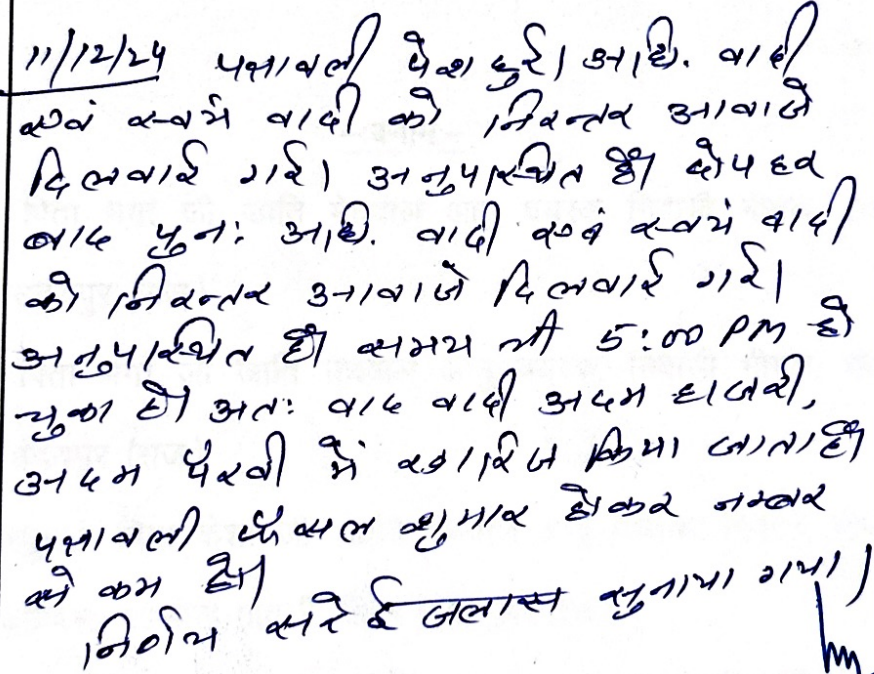 11/12/24 पत्रावली पेश हुई। अधि. वादी
एवं स्वयं वादी को निरन्तर आवाजे
दिलवाई गई। अनुपस्थित है। दोपहर
बाद पुनः अधि. वादी एवं स्वयं वादी
को निरन्तर आवाजे दिलवाई गई।
अनुपस्थित है। समय भी 5:00 PM हो
चुका है। अतः वाद वादी अदम हाजरी,
अदम पैरवी में खारिज किया जाता है।
पत्रावली फैसल शुमार होकर नम्बर
से कम हो।
निर्णय सरे ईजलास सुनाया गया।